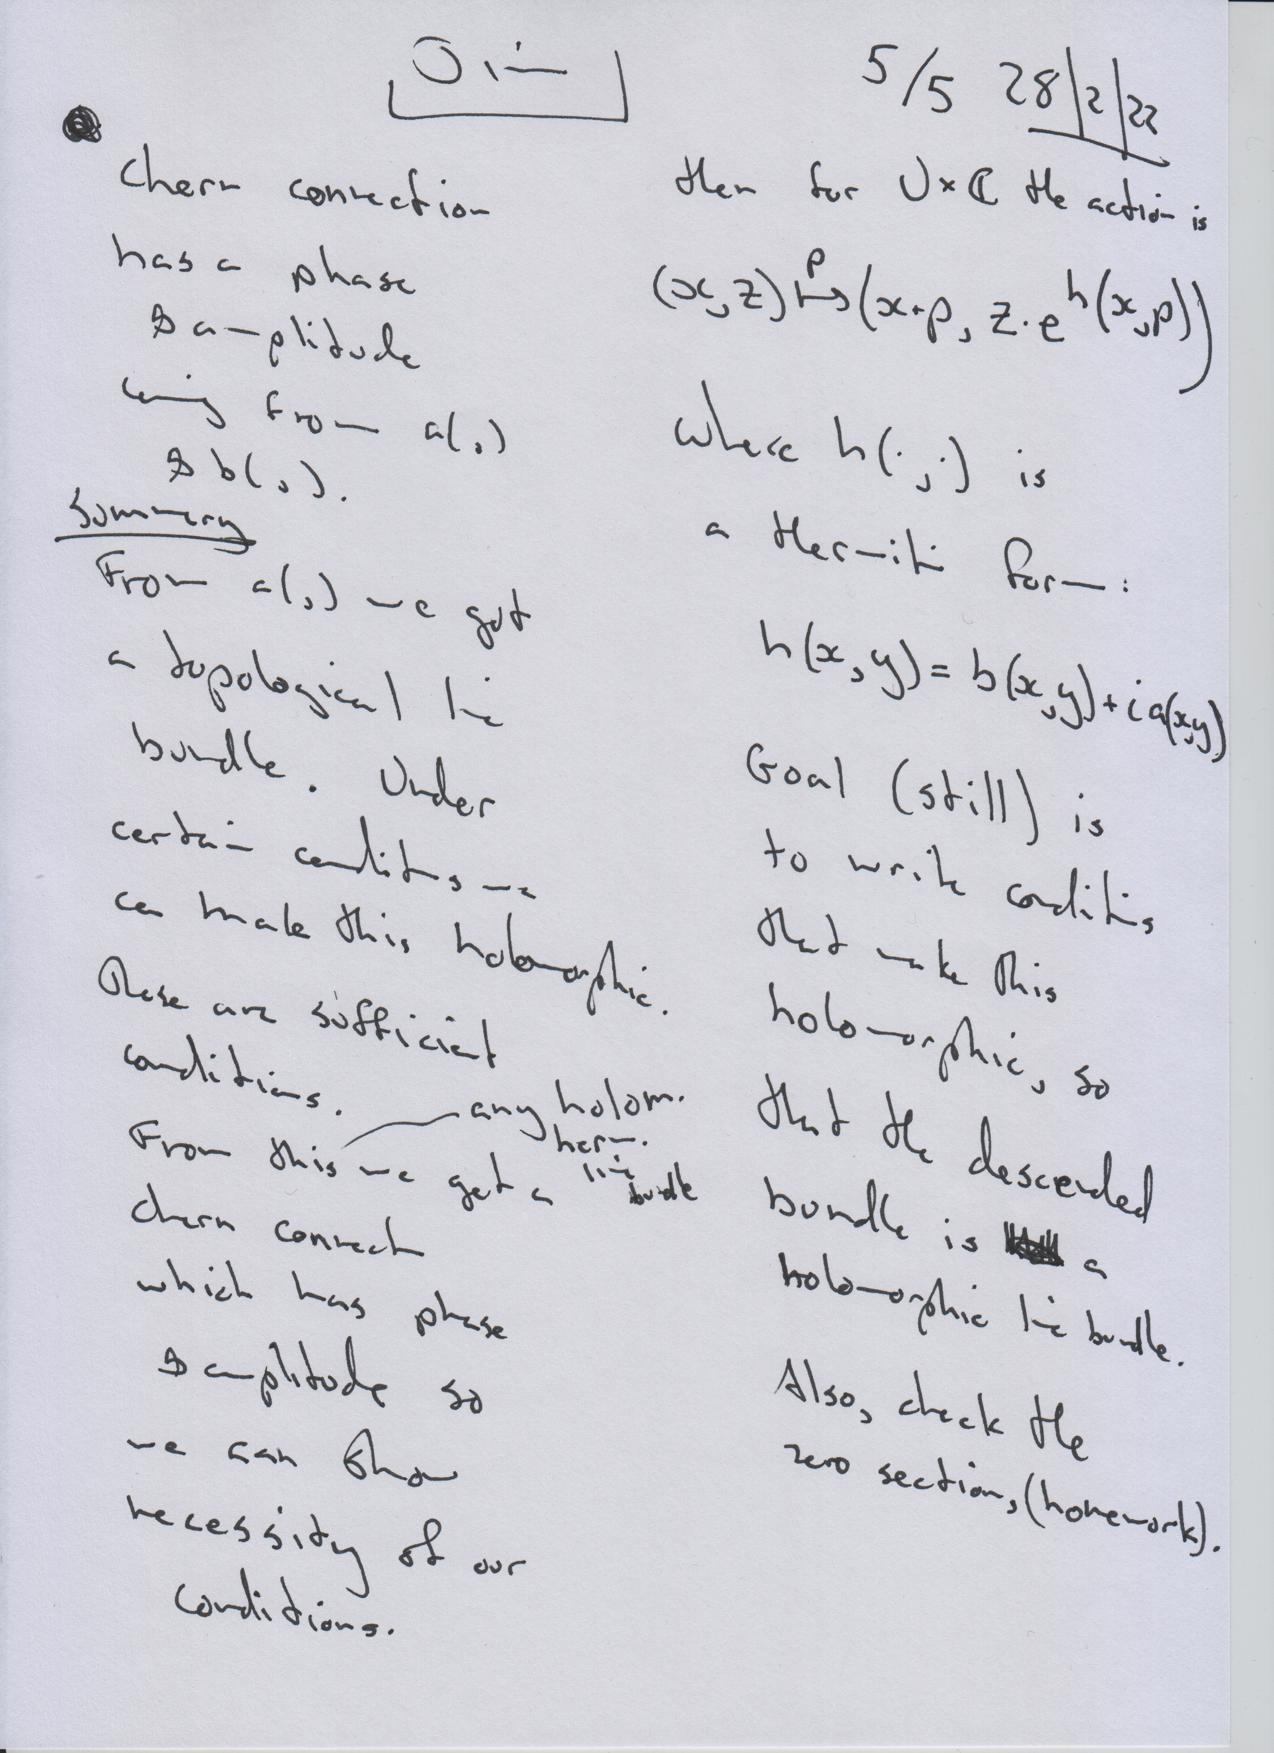 5/5 28/2/22
Chern connection
has a phase
& amplitude
coming from a(,)
& b(,).
Summary
From a(,) we got
a topological line
bundle. Under
certain conditions we
can make this holomorphic.
These are sufficient
conditions.
any holom.
herm.
line
bundle
From this we get a
Chern connect
which has phase
& amplitude so
we can show
necessity of our
conditions.
then for U×ℂ the action is
(x,z) ↦ᵖ (x+p, z·e^h(x,p))
where h(·,·) is
a Hermitian form:
h(x,y) = b(x,y) + i a(x,y)
Goal (still) is
to write conditions
that make this
holomorphic, so
that the descended
bundle is a
holomorphic line bundle.
Also, check the
zero section, (homework).